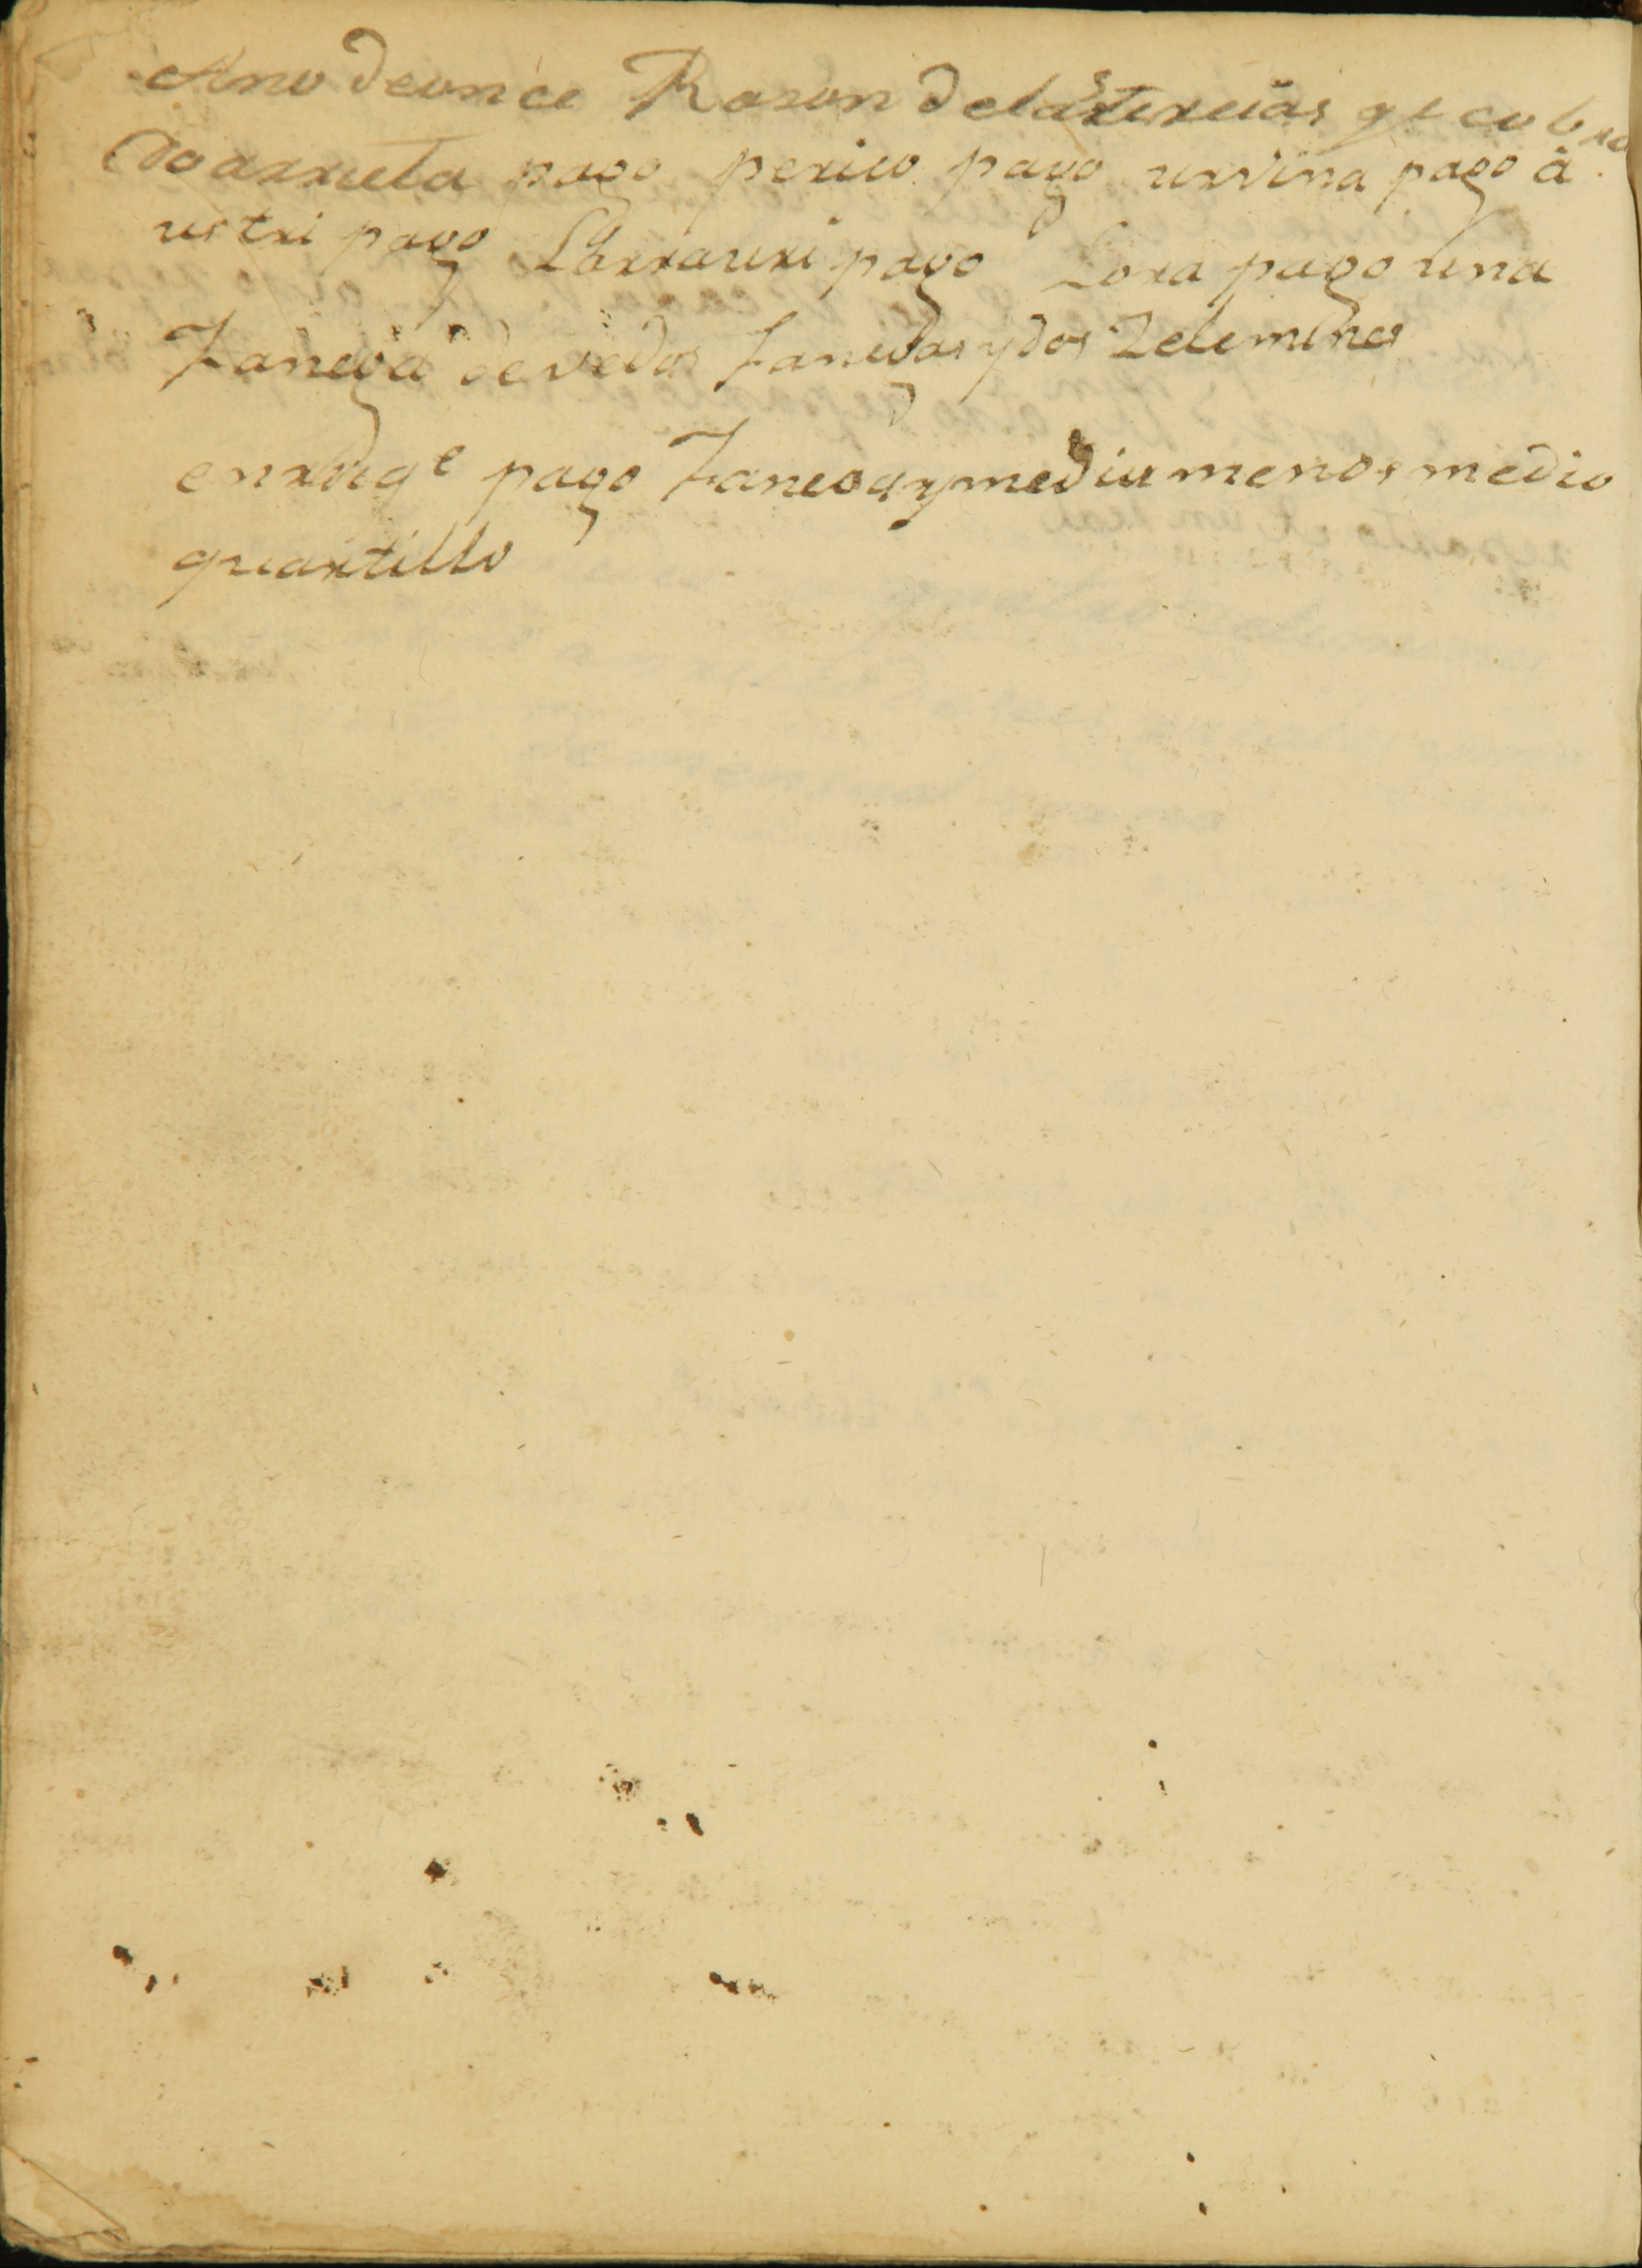 Ano de once Rason de las terceias qe cobra
do arrieta pago perico pago urvina pago a
ustri pago Larrauri pago Lora pago una
fanega deve dos fanegas y dos zelemines
pago fanega y media menos medio
quartillo